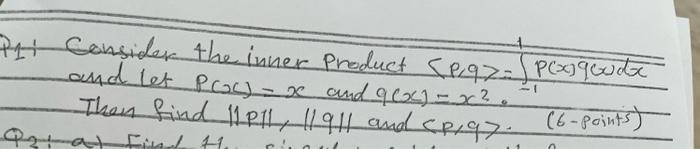 P1: Consider the inner product <p,q> = ∫₋₁¹ p(x)q(x)dx
and let P(x) = x and q(x) = x².
Then find ||p||, ||q|| and <p,q>. (6-points)
P2: a) Find the